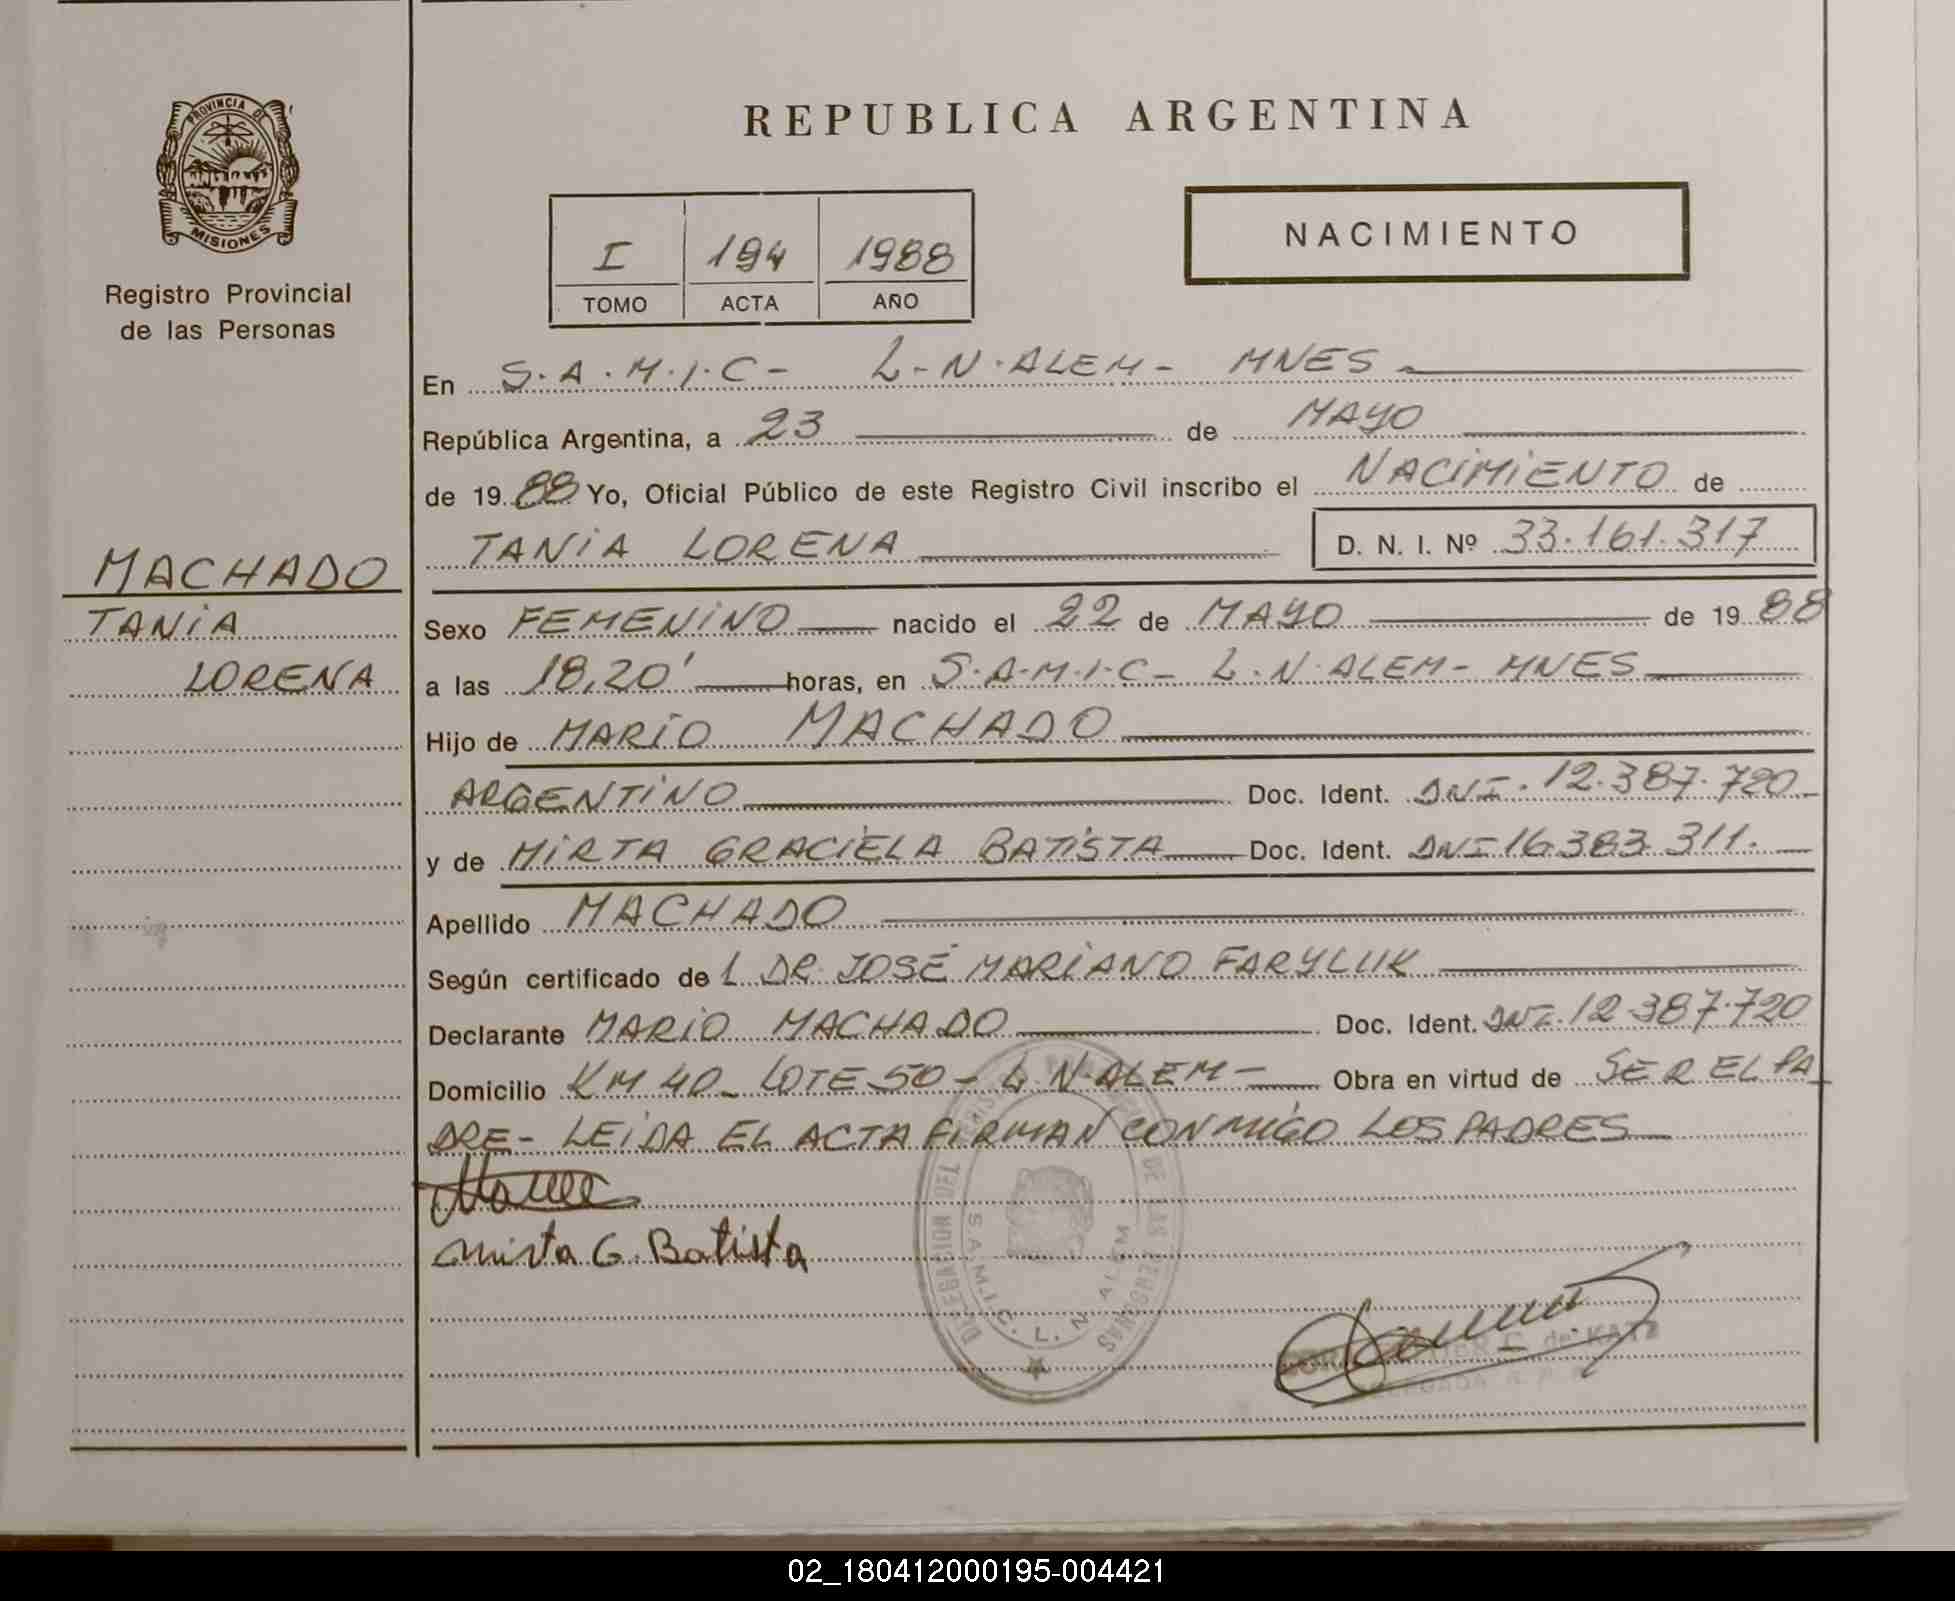 PROVINCIA DE
MISIONES
Registro Provincial
de las Personas
MACHADO
TANIA
LORENA
REPUBLICA ARGENTINA
I 194 1988
TOMO ACTA AÑO
NACIMIENTO
En S.A.M.I.C- L.N.ALEM- MNES
República Argentina, a 23 de MAYO
de 1988 Yo, Oficial Público de este Registro Civil inscribo el NACIMIENTO de
TANIA LORENA D. N. I. Nº 33.161.317
Sexo FEMENINO nacido el 22 de MAYO de 1988
a las 18,20' horas, en S.A.M.I.C- L.N.ALEM- MNES
Hijo de MARIO MACHADO
ARGENTINO Doc. Ident. DNI. 12.387.720
y de MIRTA GRACIELA BATISTA Doc. Ident. DNI 16.383.311.
Apellido MACHADO
Según certificado de L DR. JOSÉ MARIANO FARYLUK
Declarante MARIO MACHADO Doc. Ident. DNI. 12.387.720
Domicilio KM 40- LOTE 50- L.N.ALEM- Obra en virtud de SER EL PA
DRE- LEIDA EL ACTA FIRMAN CONMIGO LOS PADRES
Mirta G. Batista
DELEGACION DEL REGISTRO DE LAS PERSONAS
S.A.M.I.C. L. N. ALEM
C. de KATZ
DELEGADA
02_180412000195-004421